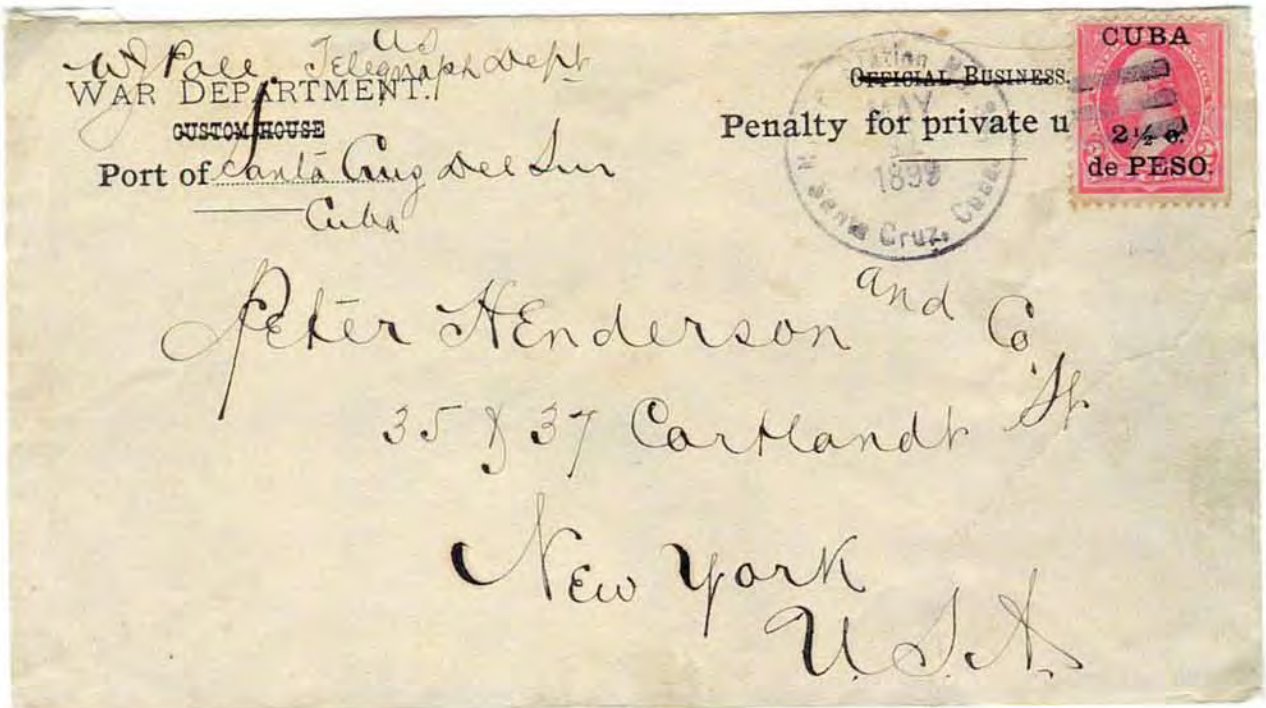 U.S.
Telegraph Dept
WAR DEPARTMENT.
CUSTOM HOUSE
Port of Santa Cruz Del Sur
Cuba
OFFICIAL BUSINESS.
Penalty for private u
MAY
1899
Santa Cruz, Cuba.
CUBA
2½ c.
de PESO.
Peter Henderson and Co
35 & 37 Cortlandt St
New York
U.S.A.